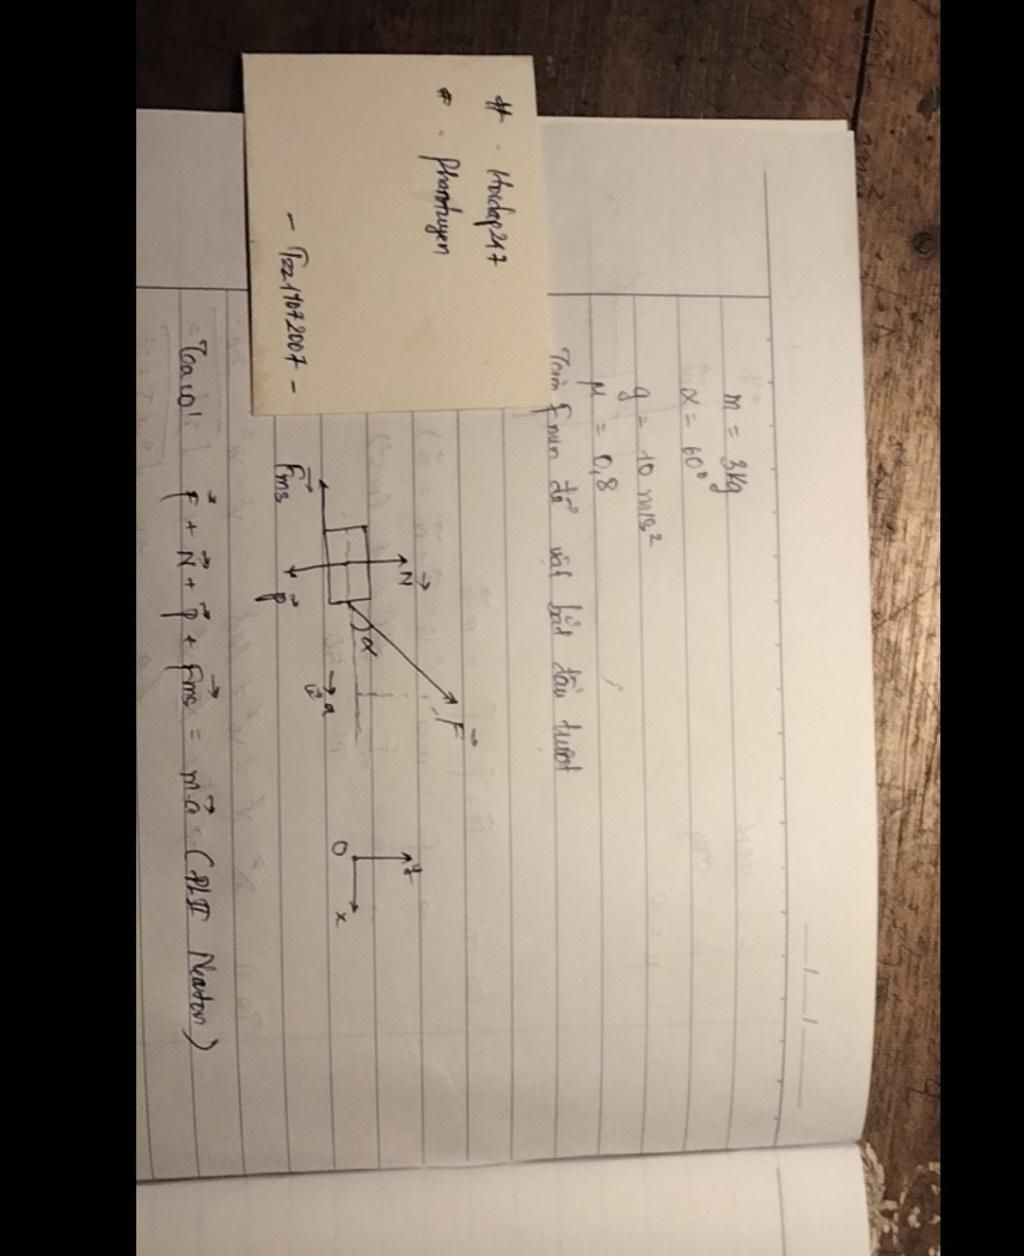 # . Hoidap247
# . phamtuyen
- Tzz19072007 -
m = 3kg
α = 60°
g = 10 m/s²
μ = 0,8
Tìm Fmin để vật bắt đầu trượt
N
F
α
Fms
P
a
y
O
x
Ta có: F + N + P + Fms = m.a (ĐLII Newton)